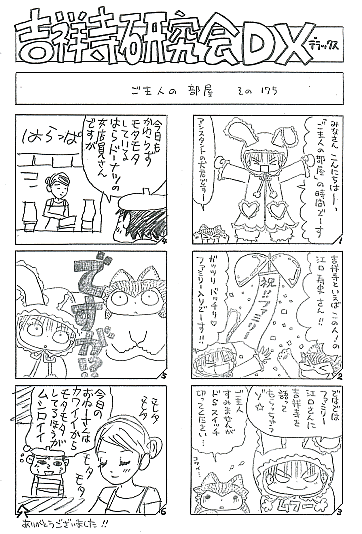 吉祥寺研究会DX
デラックス
ご主人の部屋 その175
みなさん こんにちはー!
「ご主人の部屋」の時間でーす
アシスタントの犬店でーす
1
吉祥寺といえばこの人!
江口寿史さん!!
ガッツリ バッチリ♡
ファミリー入りでーす!!
祝!!ファミリー
2
ではでは
江口さんに
吉祥寺を
語って
もらっちゃう
ゾ☆
ご主人
すみませんが
ドSスイッチ
切ってください…
3
今日も
かわらず
モタモタ
している
はらドーナッツの
女店員さん
ですが
はらっぱ
4
ですが?
5
モタ
モタ
今日の
おねーさんは
カワイイから
モタモタが
してるほうが
ムシロイイ
モタ
モタ
6
ありがとうございました!!